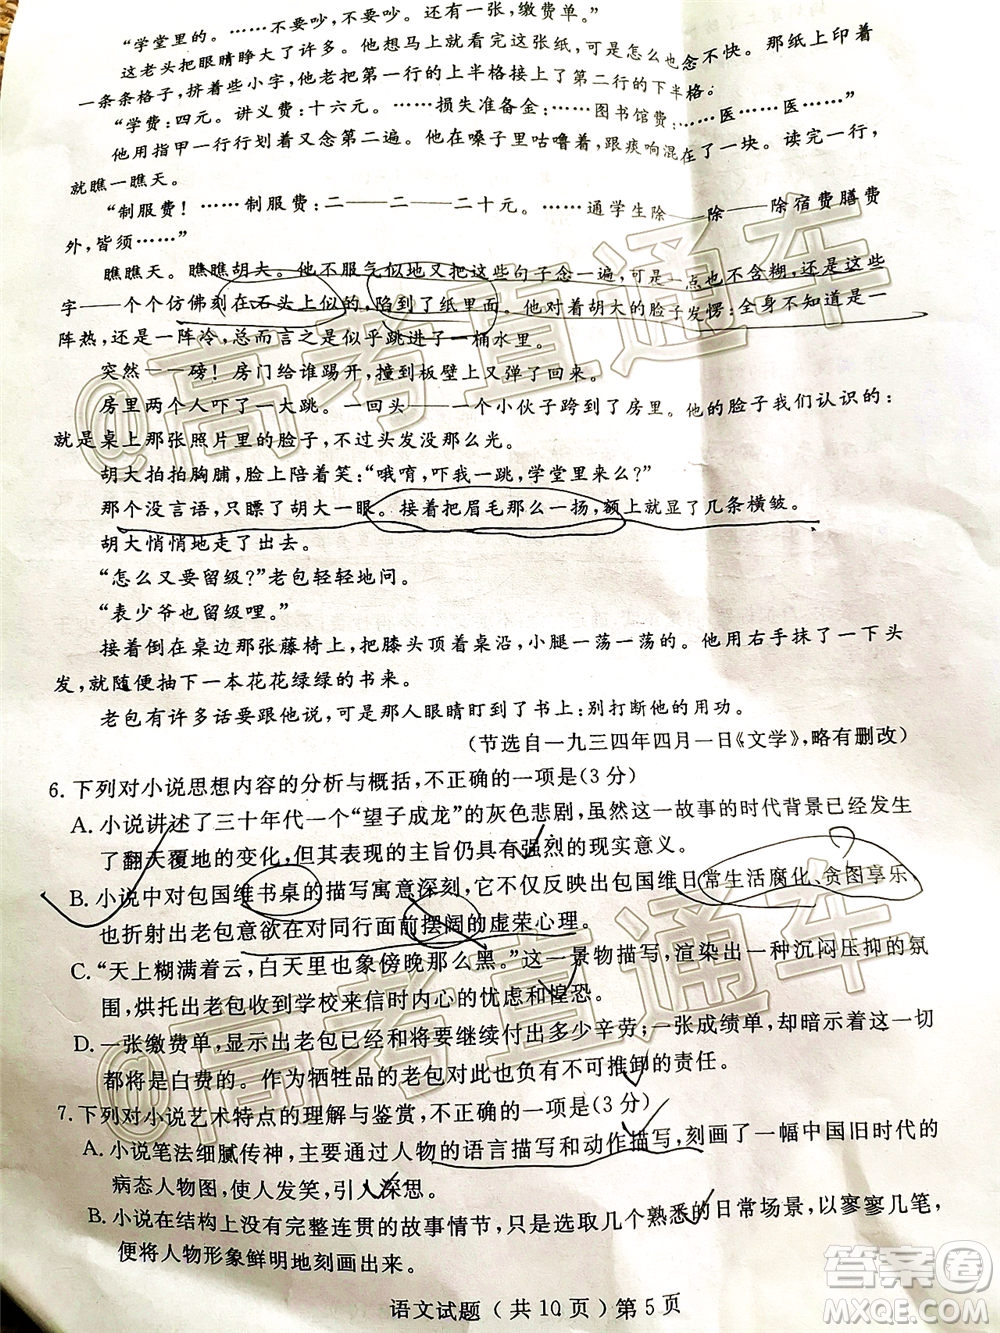 “学堂里的。……不要吵,不要吵。还有一张,缴费单。”
这老头把眼睛睁大了许多。他想马上看完这张纸,可是怎么也念不快。那纸上印着
一条条格子,挤着些小字,他老把第一行的上半格接上了第二行的下半格。
“学费:四元。讲义费:十六元。……损失准备金:……图书馆费:……医……医……”
他用指甲一行行划着又念第二遍。他在嗓子里咕噜着,跟痰响混在了一块。读完一行,
就瞧一瞧天。
“制服费!……制服费:二——二——二十元。……通学生除——除——除宿费膳费
外,皆须……”
瞧瞧天。瞧瞧胡大。他不服气似地又把这些句子念一遍,可是一点也不含糊,还是这些
字——个个仿佛刻在石头上似的,陷到了纸里面。他对着胡大的脸子发愣:全身不知道是
阵热,还是一阵冷,总而言之是似乎跳进了一桶水里。
突然——磅!房门给谁踢开,撞到板壁上又弹了回来。
房里两个人吓了一大跳。一回头——一个小伙子跨到了房里。他的脸子我们认识的:
就是桌上那张照片里的脸子,不过头发没那么光。
胡大拍拍胸脯,脸上陪着笑:“哦唷,吓我一跳,学堂里来么?”
那个没言语,只瞟了胡大一眼。接着把眉毛那么一扬,额上就显了几条横皱。
胡大悄悄地走了出去。
“怎么又要留级?”老包轻轻地问。
“表少爷也留级哩。”
接着倒在桌边那张藤椅上,把膝头顶着桌沿,小腿一荡一荡的。他用右手抹了一下头
发,就随便抽下一本花花绿绿的书来。
老包有许多话要跟他说,可是那人眼睛盯到了书上:别打断他的用功。
(节选自一九三四年四月一日《文学》,略有删改)
6.下列对小说思想内容的分析与概括,不正确的一项是(3分)
A.小说讲述了三十年代一个“望子成龙”的灰色悲剧,虽然这一故事的时代背景已经发生
了翻天覆地的变化,但其表现的主旨仍具有强烈的现实意义。
B.小说中对包国维书桌的描写寓意深刻,它不仅反映出包国维日常生活腐化、贪图享乐
也折射出老包意欲在对同行面前摆阔的虚荣心理。
C.“天上糊满着云,白天里也象傍晚那么黑。”这一景物描写,渲染出一种沉闷压抑的氛
围,烘托出老包收到学校来信时内心的忧虑和惶恐。
D.一张缴费单,显示出老包已经和将要继续付出多少辛劳;一张成绩单,却宣告了这一切
都将是白费的。作为牺牲品的老包对此却有不可推卸的责任。
7.下列对小说艺术特点的理解与鉴赏,不正确的一项是(3分)
A.小说笔法细腻传神,主要通过人物的语言描写和动作描写,刻画了一幅中国旧时代的
病态人物图,使人发笑,引人深思。
B.小说在结构上没有完整连贯的故事情节,只是选取几个熟悉的日常场景,以寥寥几笔,
便将人物形象鲜明地刻画出来。
语文试题(共10页)第5页
@高考直通车
@高考直通车
答案圈
MXQE.COM